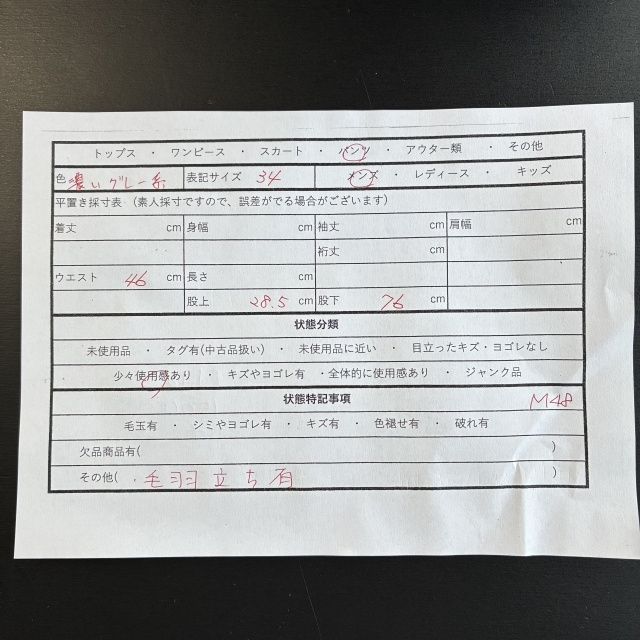 トップス ・ ワンピース ・ スカート ・ パンツ ・ アウター類 ・ その他
色 濃いグレー系 表記サイズ 34 メンズ ・ レディース ・ キッズ
平置き採寸表 （素人採寸ですので、誤差がでる場合がございます）
着丈 cm 身幅 cm 袖丈 cm 肩幅 cm
裄丈 cm
ウエスト 46 cm 長さ cm
股上 28.5 cm 股下 76 cm
状態分類
未使用品 ・ タグ有(中古品扱い) ・ 未使用品に近い ・ 目立ったキズ・ヨゴレなし
少々使用感あり ・ キズやヨゴレ有 ・全体的に使用感あり ・ ジャンク品
状態特記事項 M48
毛玉有 ・ シミやヨゴレ有 ・ キズ有 ・ 色褪せ有 ・ 破れ有
欠品商品有( )
その他( ・毛羽立ち有 )